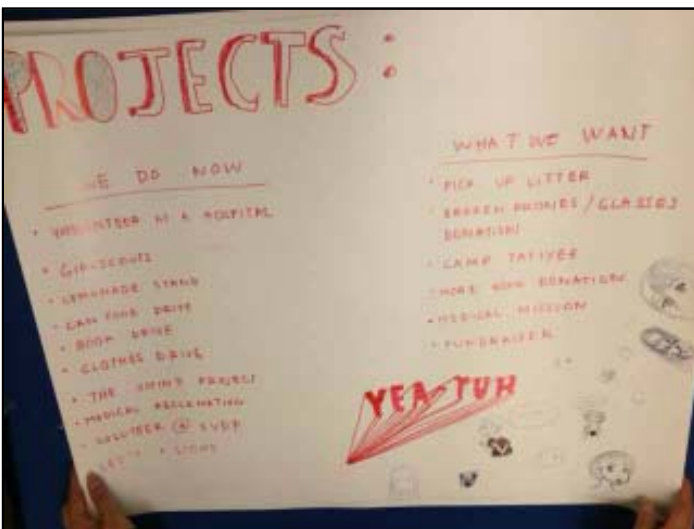 PROJECTS:
WE DO NOW
• VOLUNTEER AT A HOSPITAL
• GIRLSCOUTS
• LEMONADE STAND
• CAN FOOD DRIVE
• BOOK DRIVE
• CLOTHES DRIVE
• THE PROJECT
• MEDICAL
• VOLUNTEER @ SVDP
WHAT WE WANT
• PICK UP LITTER
• BROKEN PHONES / GLASSES
DONATION
• CAMP TATIYEE
• MORE BOOK DONATION
• MEDICAL MISSION
• FUNDRAISER
YEA-TUH